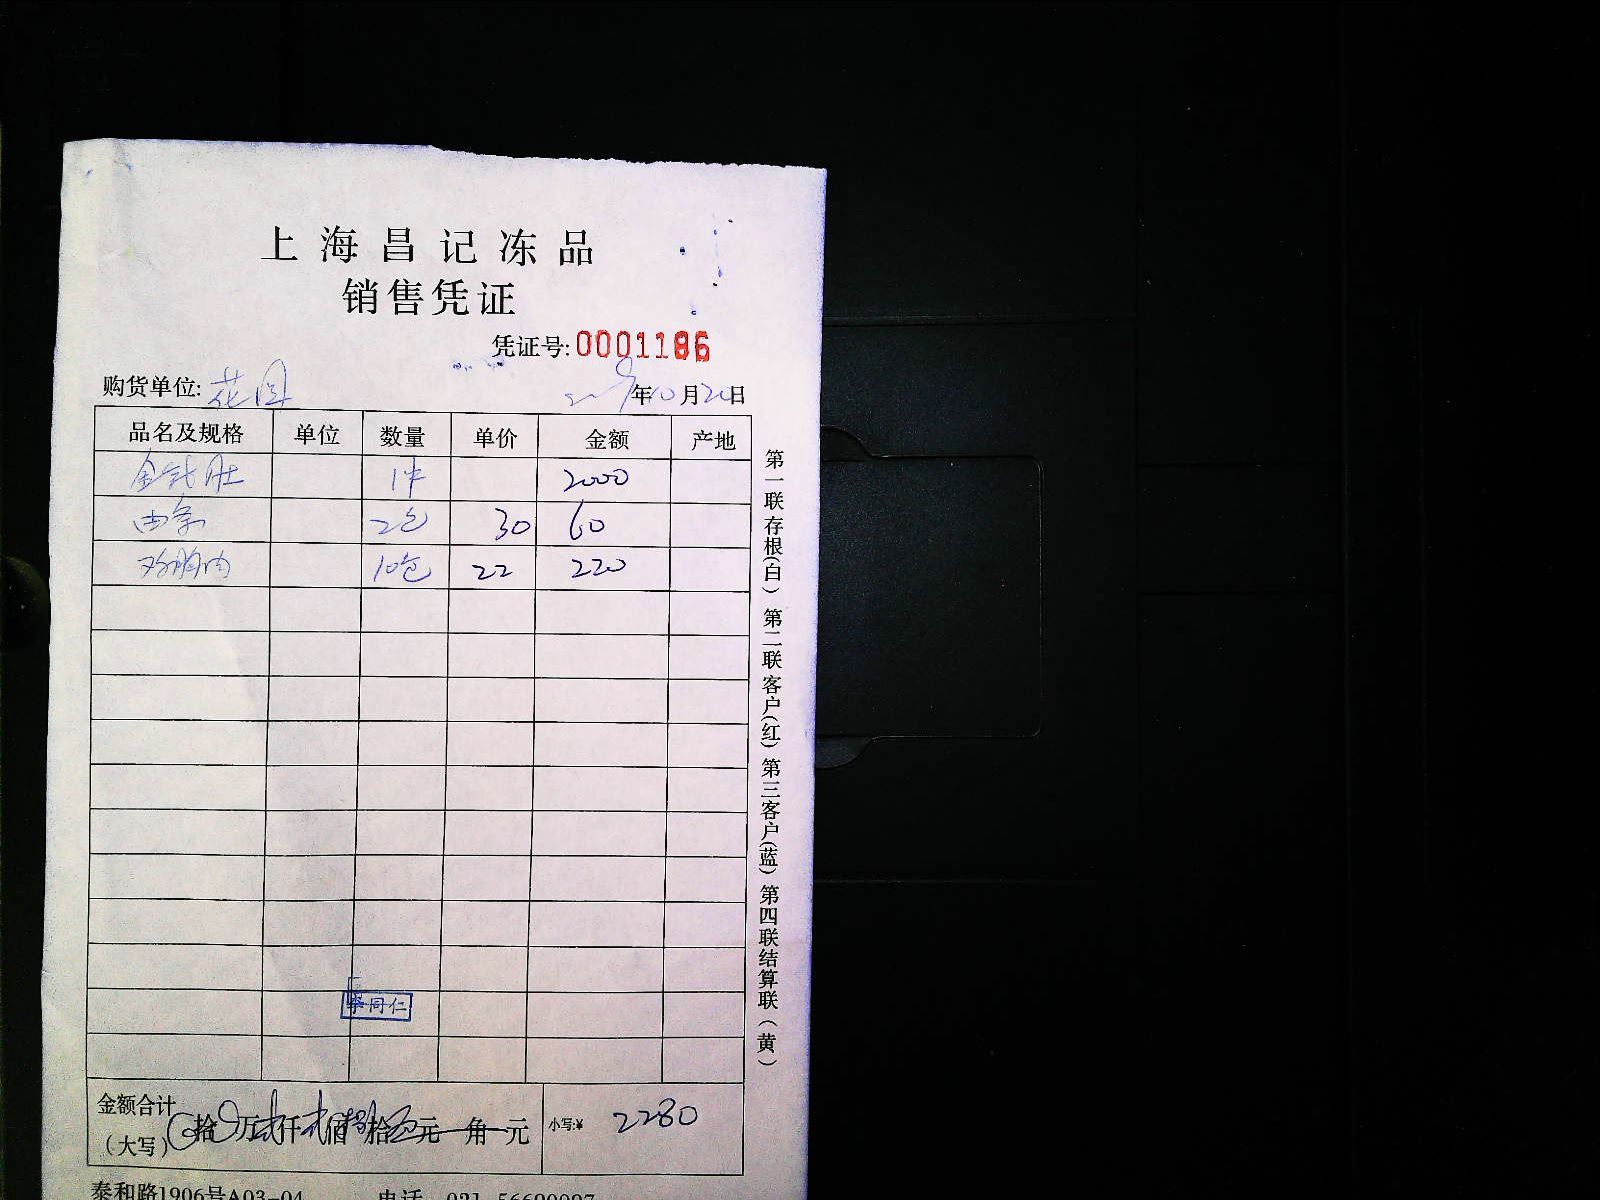 上海昌记冻品
销售凭证
凭证号:0001186
购货单位:花园 年10月20日
品名及规格 单位 数量 单价 金额 产地
金钱肚 1件 2000
2包 30 60
鸡胸肉 10包 22 220
李同仁
金额合计
(大写) 拾 万 仟 佰 拾 元 角 元 小写:¥ 2280
泰和路1906号A03-04 电话
第一联存根(白) 第二联客户(红) 第三客户(蓝) 第四联结算联(黄)